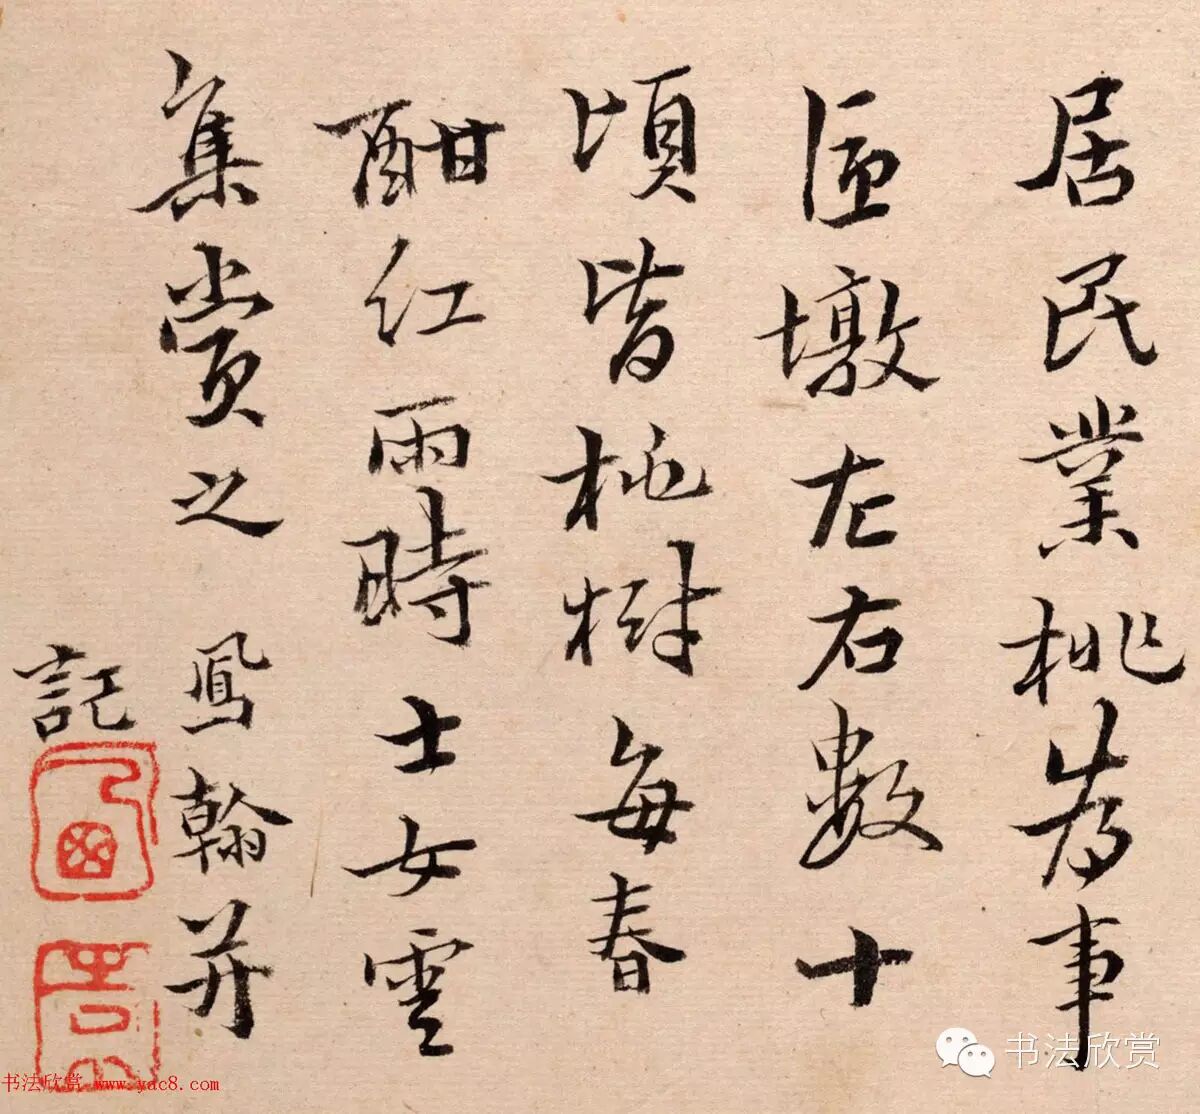 居民業桃為事
匝墩左右數十
頃皆桃樹每春
酣紅雨時士女雲
集賞之 鳳翰并
記
书法欣赏
书法欣赏 www.yac8.com